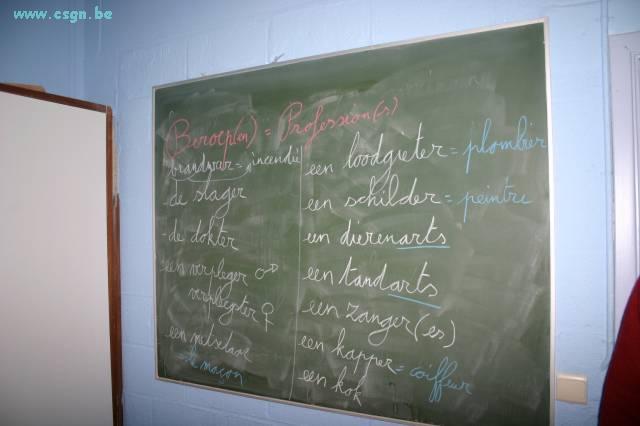 www.csgn.be
(Beroep(en) = Profession(s)
brandweer = incendie
- de slager
- de dokter
- een verpleger ♂
verpleegster ♀
- een metselaar
= le maçon
een loodgieter = plombier
een schilder = peintre
een dierenarts
een tandarts
een zanger(es)
een kapper = coiffeur
een kok